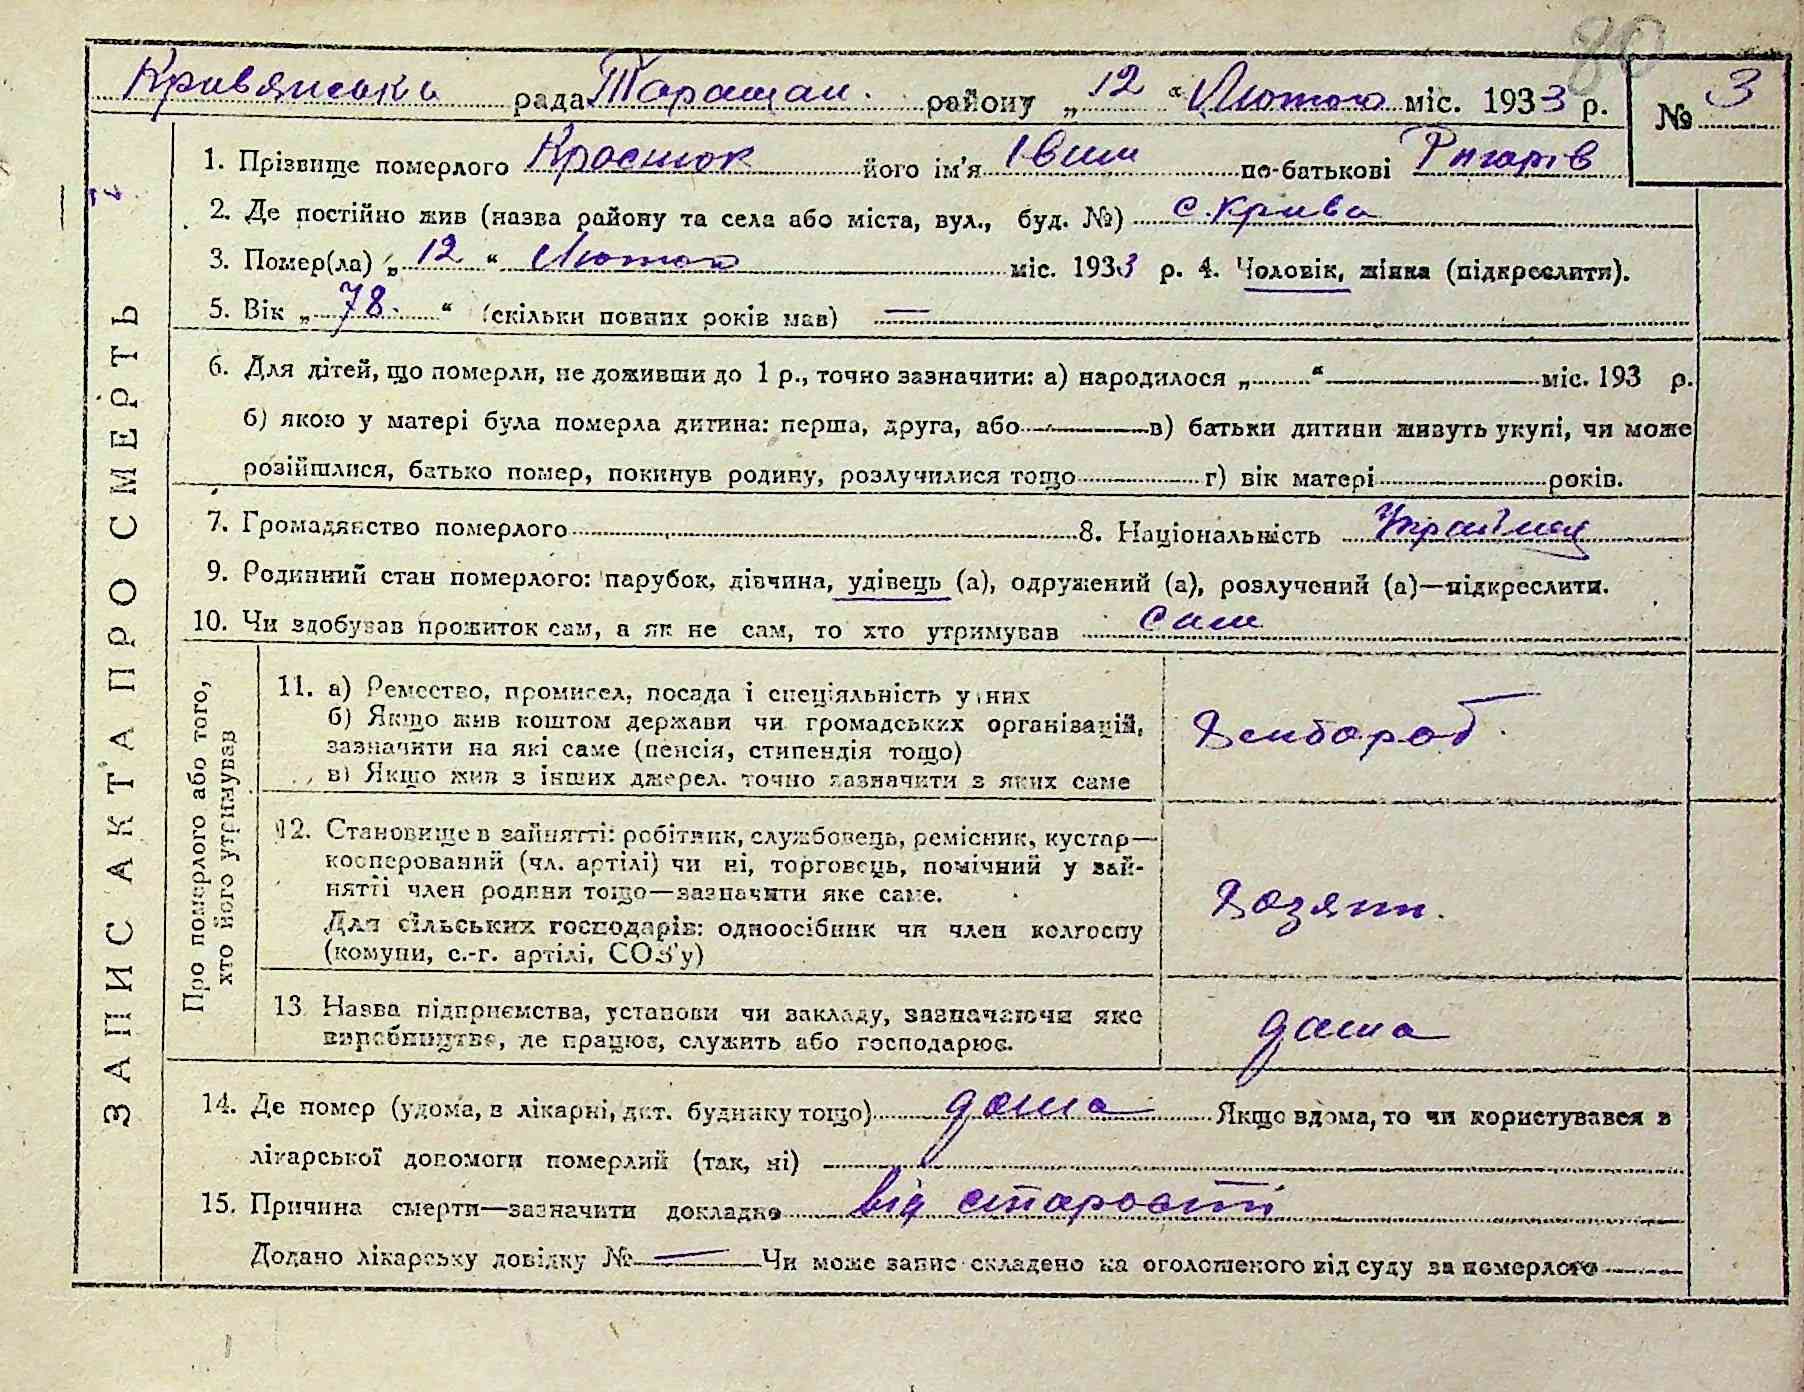 80
Кривянська рада Таращан. району „ 12 “ Лютого міс. 1933 р. № 3
1. Прізвище померлого його ім'я Іван по-батькові
2. Де постійно жив (назва району та села або міста, вул., буд. №) с. Крива
3. Помер(ла) „ 12 “ Лютого міс. 1933 р. 4. Чоловік, жінка (підкреслити).
5. Вік „ 78. “ (скільки повних років мав) —
6. Для дітей, що померли, не доживши до 1 р., точно зазначити: а) народилося „ “ міс. 193 р.
б) якою у матері була померла дитина: перша, друга, або в) батьки дитини живуть укупі, чи може
розійшлися, батько помер, покинув родину, розлучилися тощо г) вік матері років.
7. Громадянство померлого 8. Національність
9. Родинний стан померлого: парубок, дівчина, удівець (а), одружений (а), розлучений (а)—підкреслити.
10. Чи здобував прожиток сам, а як не сам, то хто утримував сам
ЗАПИС АКТА ПРО СМЕРТЬ
Про померлого або того,
хто його утримував
11. а) Ремество, промисел, посада і спеціяльність у них
б) Якщо жив коштом держави чи громадських організацій,
зазначити на які саме (пенсія, стипендія тощо)
в) Якщо жив з інших джерел, точно зазначити з яких саме
12. Становище в зайнятті: робітник, службовець, ремісник, кустар—
кооперований (чл. артілі) чи ні, торговець, помічний у зай-
нятті член родини тощо—зазначити яке саме.
Для сільських господарів: одноосібник чи член колгоспу
(комуни, с.-г. артілі, СОЗ'у)
13 Назва підприємства, установи чи закладу, зазначаючи яке
виробництво, де працює, служить або господарює.
дома
14. Де помер (удома, в лікарні, дит. будинку тощо) дома Якщо вдома, то чи користувався в
лікарської допомоги померлий (так, ні)
15. Причина смерти—зазначити докладно від старости
Додано лікарську довідку № — Чи може запис складено на оголошеного від суду за померлого